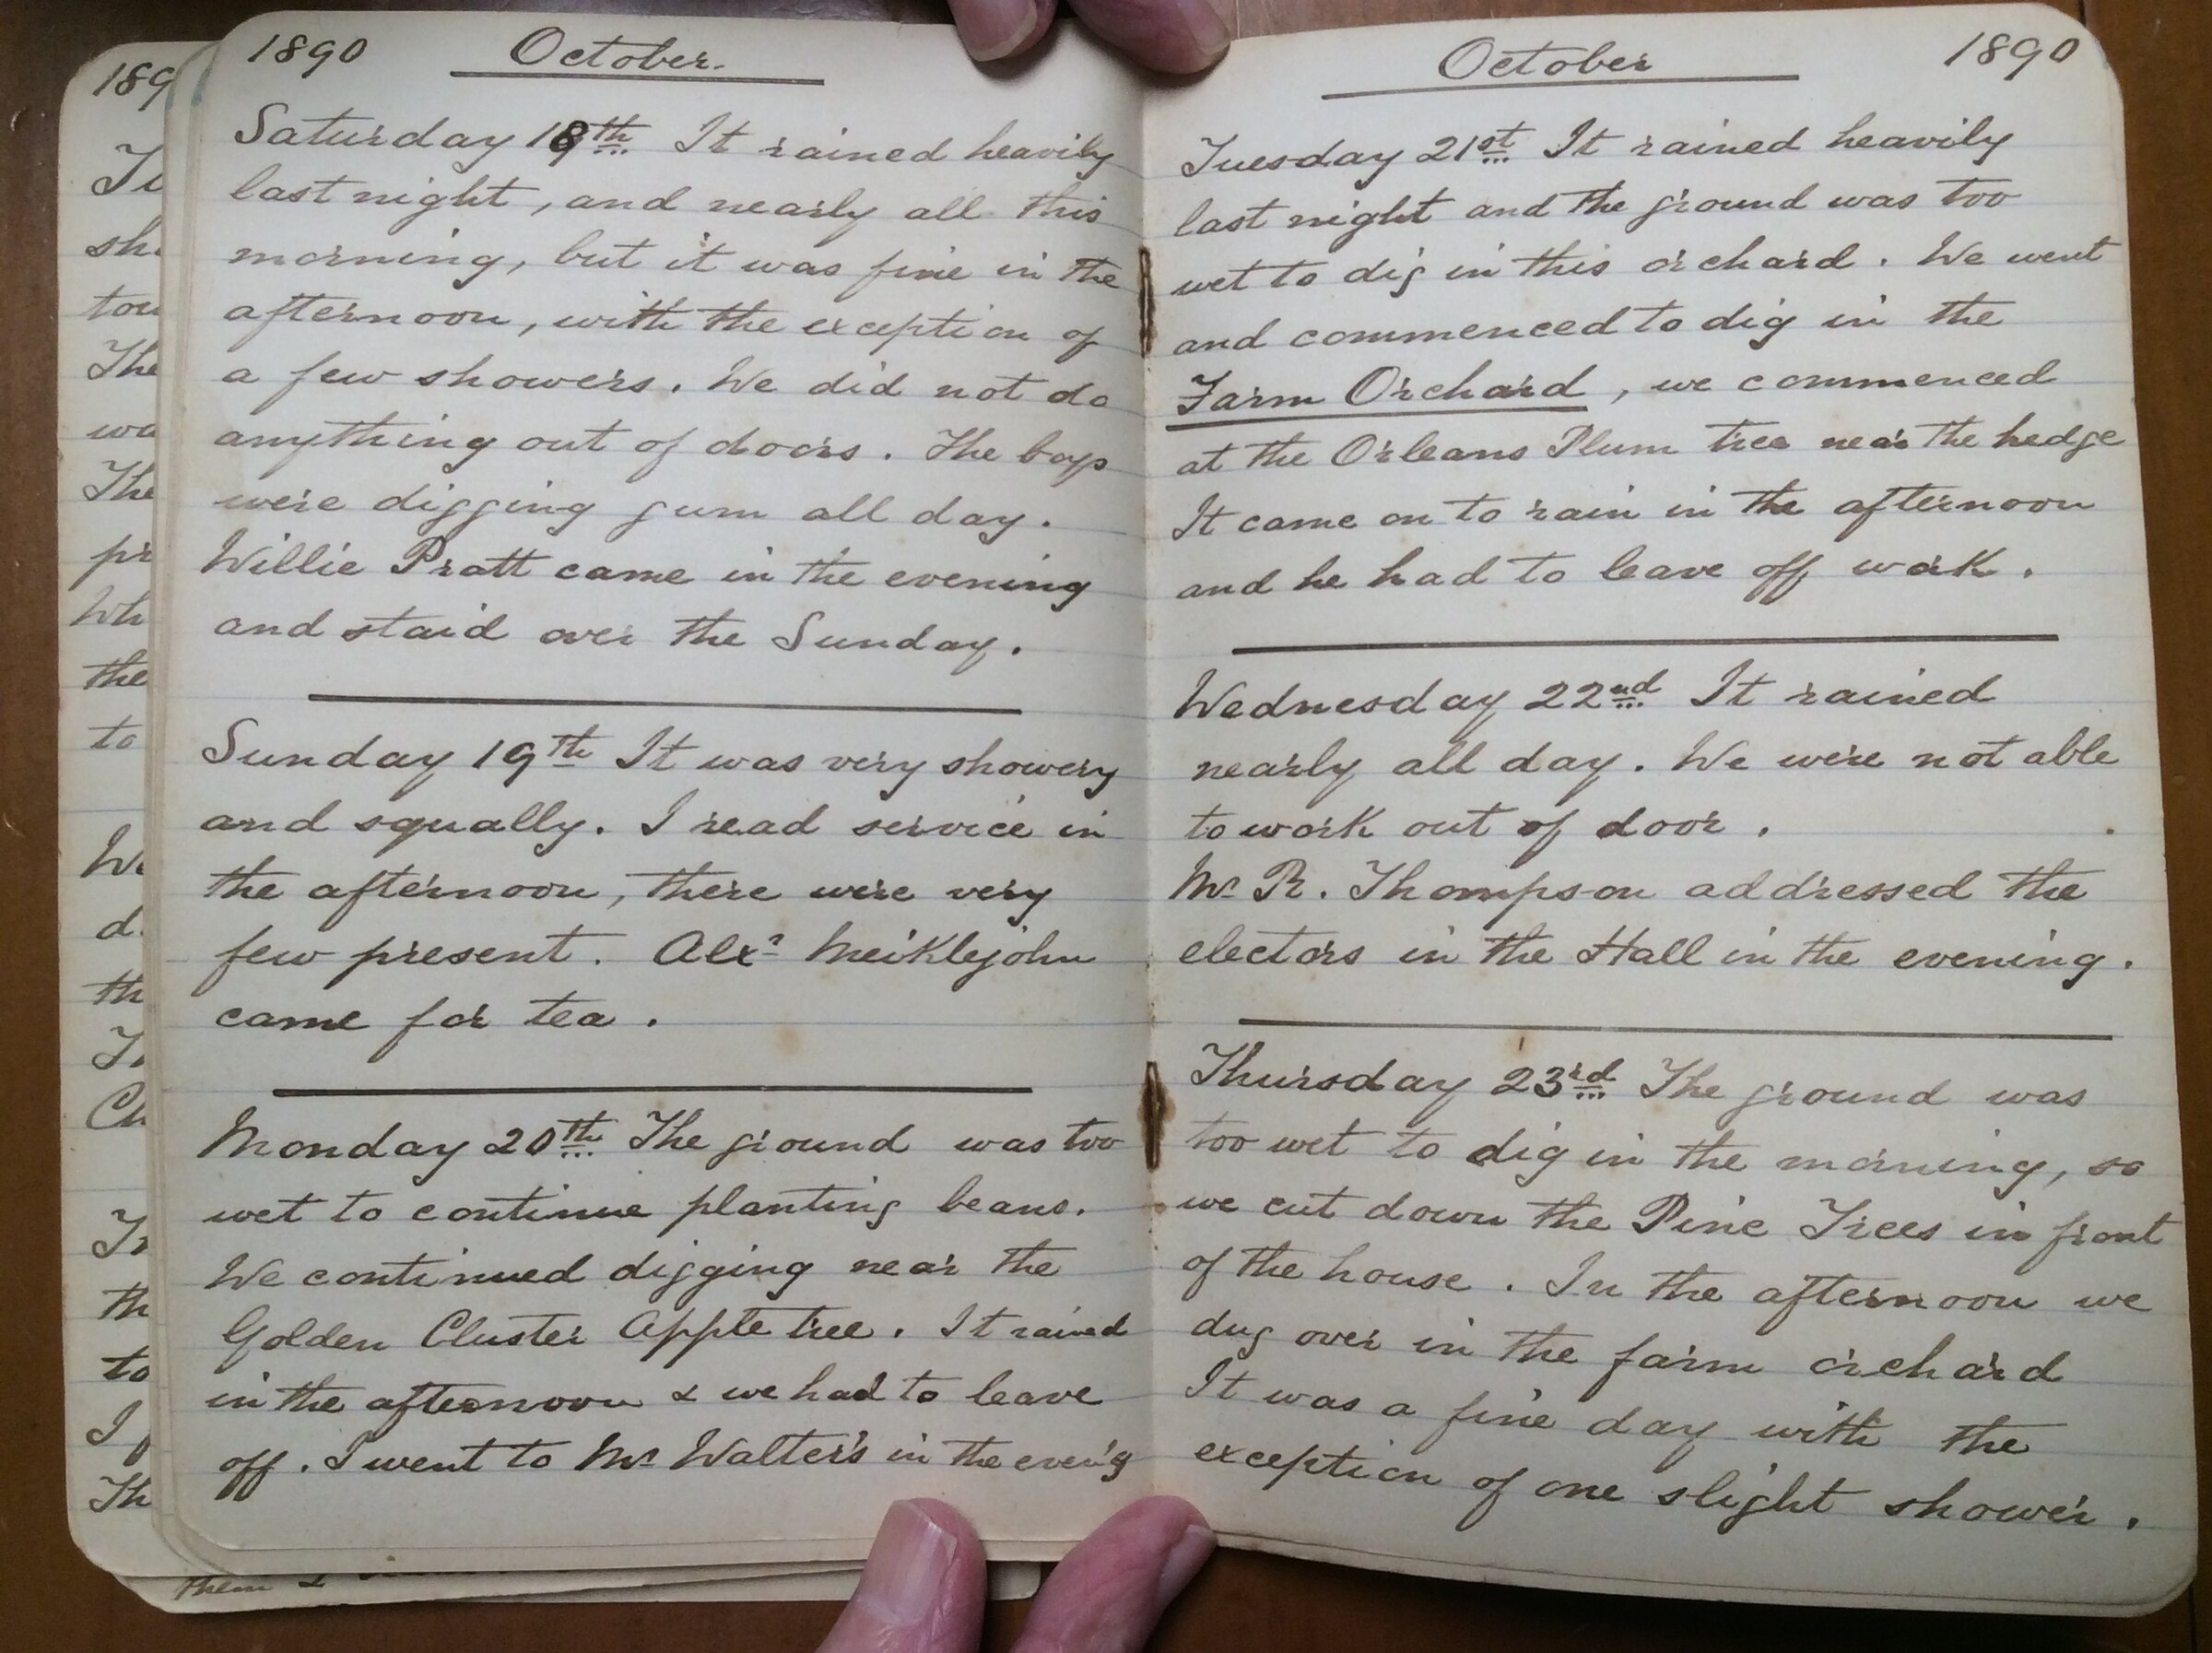 1890 October.
Saturday 18th It rained heavily
last night, and nearly all this
morning, but it was fine in the
afternoon, with the exception of
a few showers. We did not do
anything out of doors. The boys
were digging gum all day.
Willie Pratt came in the evening
and staid over the Sunday.
Sunday 19th It was very showery
and squally. I read service in
the afternoon, there were very
few present. Alexr Meiklejohn
came for tea.
Monday 20th The ground was too
wet to continue planting beans.
We continued digging near the
Golden Cluster Apple tree. It rained
in the afternoon & we had to leave
off. I went to Mr Walter's in the even'g
October 1890
Tuesday 21st It rained heavily
last night and the ground was too
wet to dig in this orchard. We went
and commenced to dig in the
Farm Orchard, we commenced
at the Orleans Plum tree near the hedge
It came on to rain in the afternoon
and he had to leave off work.
Wednesday 22nd It rained
nearly all day. We were not able
to work out of door.
Mr R. Thompson addressed the
electors in the Hall in the evening.
Thursday 23rd The ground was
too wet to dig in the morning, so
we cut down the Pine Trees in front
of the house. In the afternoon we
dug over in the farm orchard
It was a fine day with the
exception of one slight shower.
189
sh
The
The
pr
Wh
the
to
th
th
to
I
Th
them &